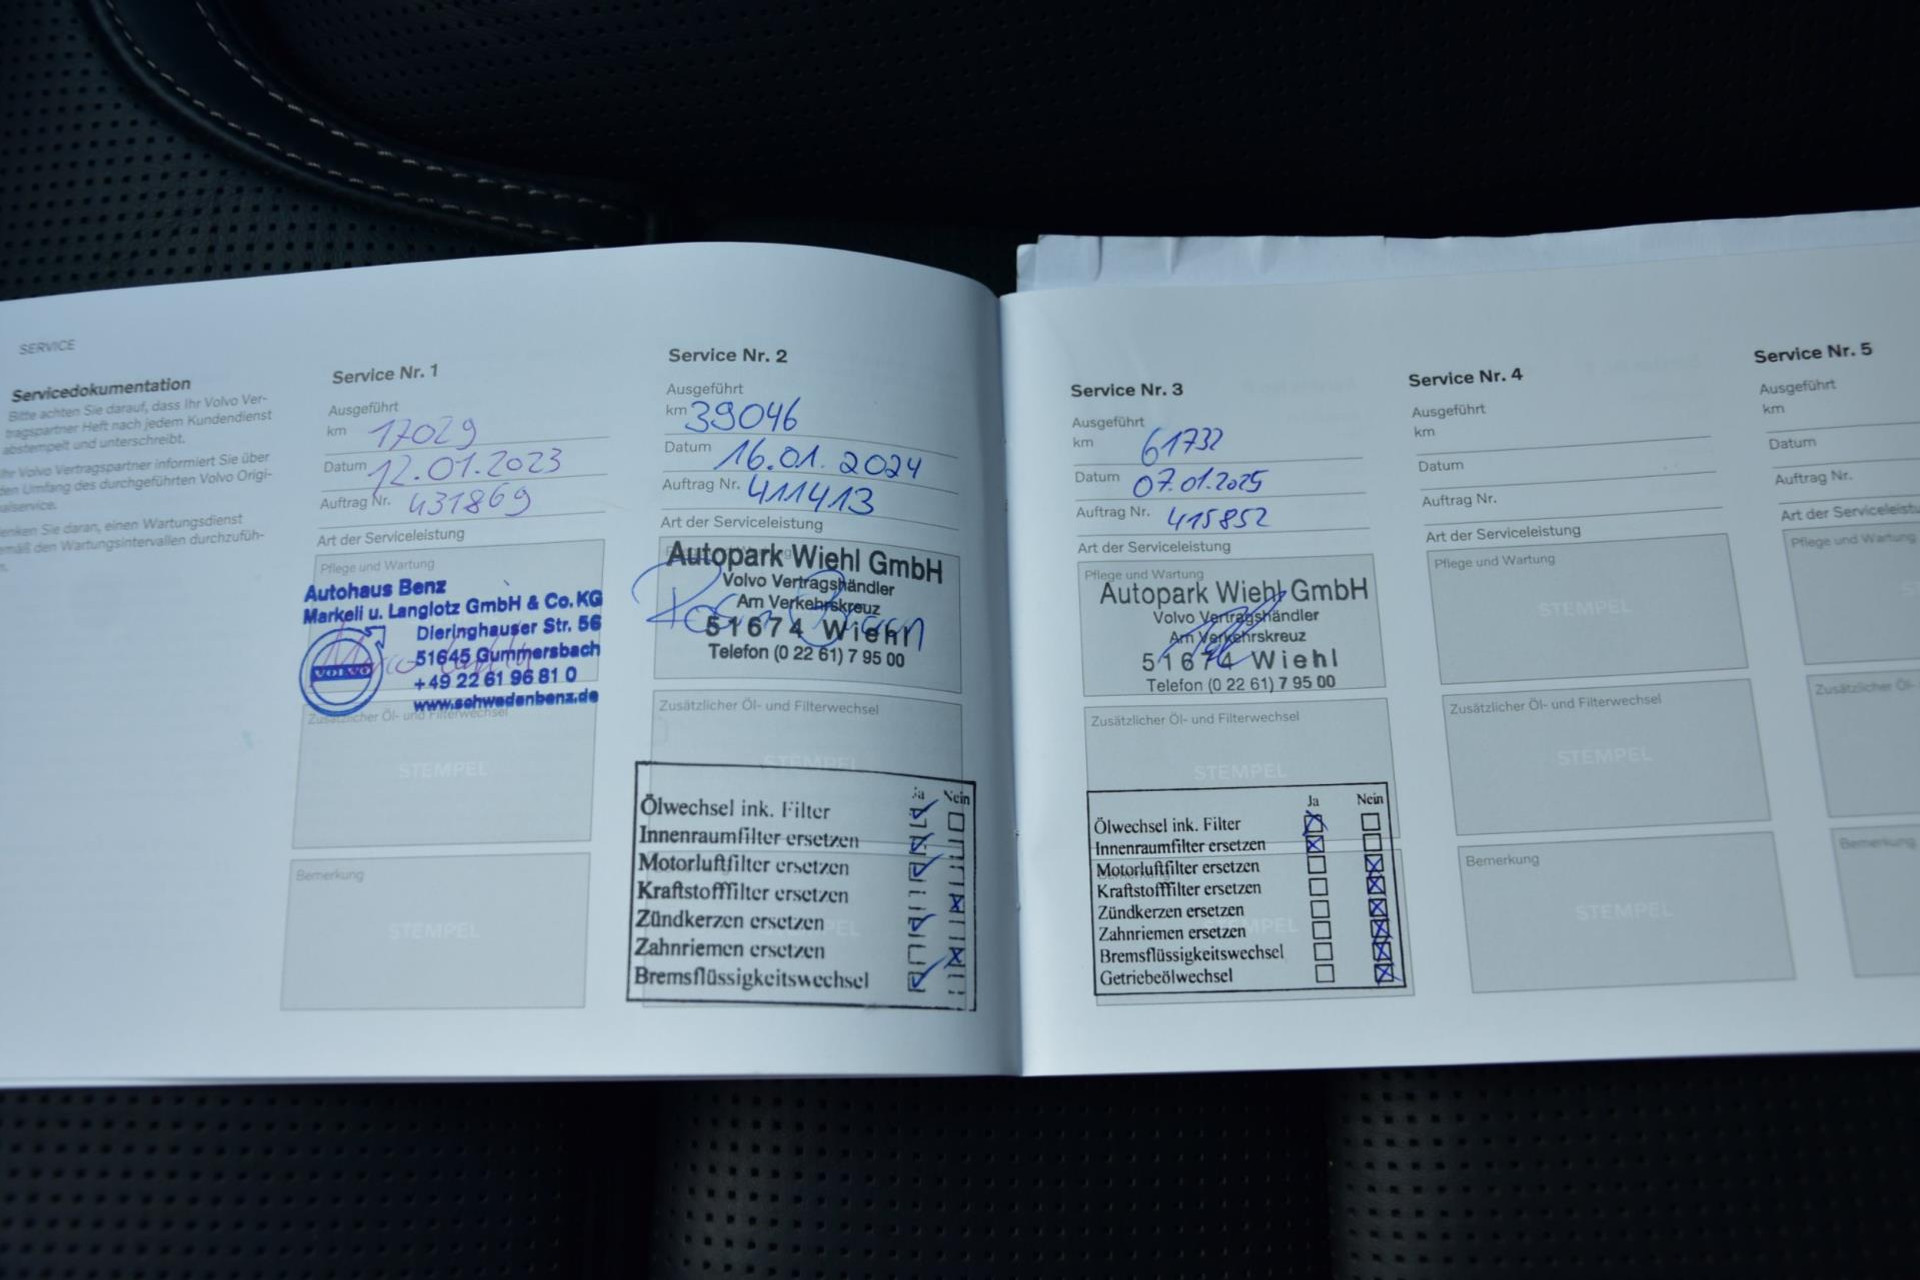 SERVICE
Servicedokumentation
Bitte achten Sie darauf, dass Ihr Volvo Ver-
tragspartner Heft nach jedem Kundendienst
abstempelt und unterschreibt.
Ihr Volvo Vertragspartner informiert Sie über
den Umfang des durchgeführten Volvo Origi-
alservice.
enken Sie daran, einen Wartungsdienst
emäß den Wartungsintervallen durchzufüh-
n.
Service Nr. 1
Ausgeführt
km 17029
Datum 12.01.2023
Auftrag Nr. 431869
Art der Serviceleistung
Pflege und Wartung
Autohaus Benz
Markeli u. Langlotz GmbH & Co. KG
Dieringhauser Str. 56
51645 Gummersbach
+49 22 61 96 81 0
www.schwedenbenz.de
VOLVO
Zusätzlicher Öl- und Filterwechsel
STEMPEL
Bemerkung
STEMPEL
Service Nr. 2
Ausgeführt
km 39046
Datum 16.01.2024
Auftrag Nr. 411413
Art der Serviceleistung
Autopark Wiehl GmbH
Volvo Vertragshändler
Am Verkehrskreuz
51674 Wiehl
Telefon (0 22 61) 7 95 00
Zusätzlicher Öl- und Filterwechsel
STEMPEL
Ja Nein
Ölwechsel ink. Filter
Innenraumfilter ersetzen
Motorluftfilter ersetzen
Kraftstofffilter ersetzen
Zündkerzen ersetzen
Zahnriemen ersetzen
Bremsflüssigkeitswechsel
Service Nr. 3
Ausgeführt
km 61732
Datum 07.01.2025
Auftrag Nr. 415852
Art der Serviceleistung
Pflege und Wartung
Autopark Wiehl GmbH
Volvo Vertragshändler
Am Verkehrskreuz
51674 Wiehl
Telefon (0 22 61) 7 95 00
Zusätzlicher Öl- und Filterwechsel
STEMPEL
Ja Nein
Ölwechsel ink. Filter
Innenraumfilter ersetzen
Motorluftfilter ersetzen
Kraftstofffilter ersetzen
Zündkerzen ersetzen
Zahnriemen ersetzen
Bremsflüssigkeitswechsel
Getriebeölwechsel
Service Nr. 4
Ausgeführt
km
Datum
Auftrag Nr.
Art der Serviceleistung
Pflege und Wartung
STEMPEL
Zusätzlicher Öl- und Filterwechsel
STEMPEL
Bemerkung
STEMPEL
Service Nr. 5
Ausgeführt
km
Datum
Auftrag Nr.
Art der Serviceleistu
Pflege und Wartung
Zusätzlicher Öl-
Bemerkung